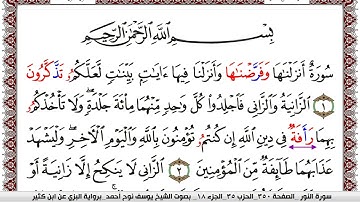 بِسْمِ ٱللَّهِ ٱلرَّحْمَٰنِ ٱلرَّحِيمِ
سُورَةٌ أَنزَلْنَٰهَا وَفَرَّضْنَٰهَا وَأَنزَلْنَا فِيهَا ءَايَٰتٍۭ بَيِّنَٰتٍ لَّعَلَّكُمُۥ تَذَّكَّرُونَ
١ ٱلزَّانِيَةُ وَٱلزَّانِي فَٱجْلِدُوا۟ كُلَّ وَٰحِدٍ مِّنْهُمَا مِا۟ئَةَ جَلْدَةٍ وَلَا تَأْخُذْكُمُۥ
بِهِمَا رَأَفَةٌ فِي دِينِ ٱللَّهِ إِن كُنتُمُۥ تُؤْمِنُونَ بِٱللَّهِ وَٱلْيَوْمِ ٱلْأٓخِرِ وَلْيَشْهَدْ
عَذَابَهُمَا طَآئِفَةٌ مِّنَ ٱلْمُؤْمِنِينَ ٢ ٱلزَّانِي لَا يَنكِحُ إِلَّا زَانِيَةً أَوْ
سورة النور _ الصفحة ٣٥٠ _ الحزب ٣٥ _ الجزء ١٨ _ بصوت الشيخ يوسف نوح أحمد _ برواية البزي عن ابن كثير